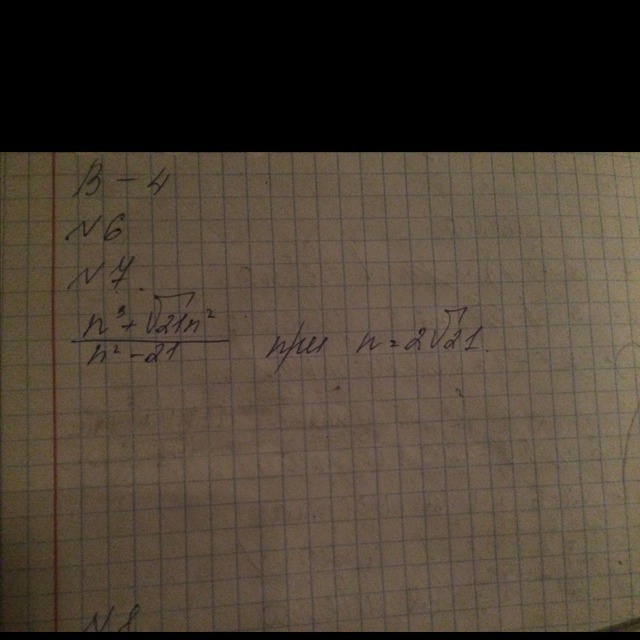 В - 4
№6
№7.
n³+√21n²
n²-21
при n=2√21.